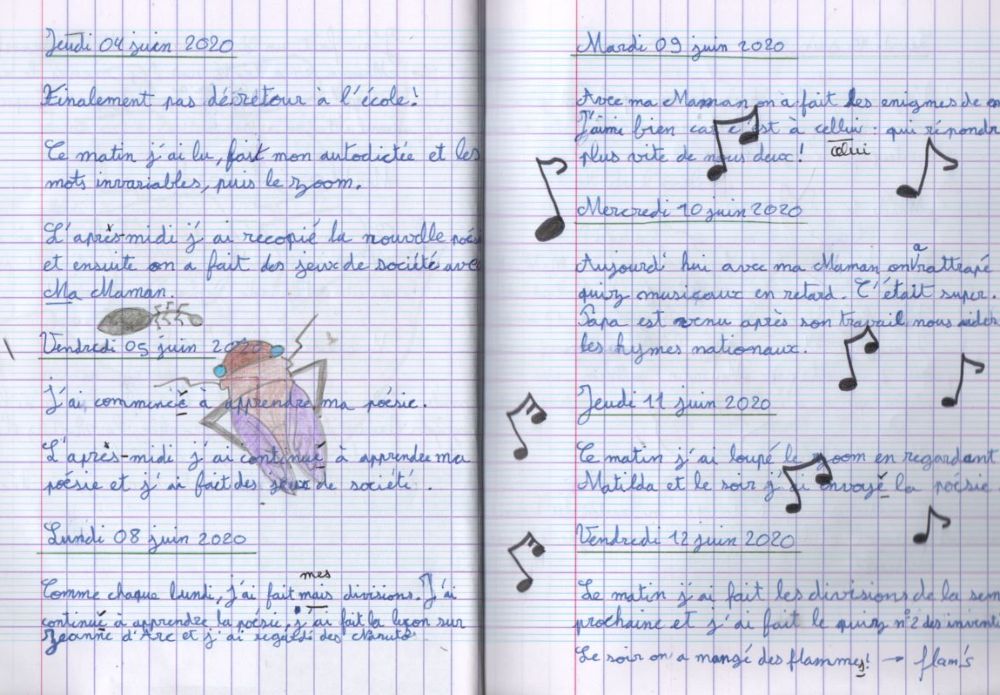 Jeudi 04 juin 2020
Finalement pas de retour à l'école!
Ce matin j'ai lu, fait mon autodictée et les
mots invariables, puis le zoom.
L'après-midi j'ai recopié la nouvelle poési
et ensuite on a fait des jeux de société avec
Ma Maman.
Vendredi 05 juin 2020
J'ai commencé à apprendre ma poésie.
L'après-midi j'ai continué à apprendre ma
poésie et j'ai fait des jeux de société.
Lundi 08 juin 2020
mes
Comme chaque lundi, j'ai fait mais divisions. J'ai
continué à apprendre la poésie, j'ai fait la leçon sur
Jeanne d'Arc et j'ai regardé des Naruto
Mardi 09 juin 2020
Avec ma Maman on à fait des enigmes de
J'aime bien car c'est à cellui: qui répondra
plus vite de nous deux! celui
Mercredi 10 juin 2020
a
Aujourd'hui avec ma Maman on rattrapé
quiz musicaux en retard. C'était super.
Papa est venu après son travail nous aider
les hymes nationaux.
Jeudi 11 juin 2020
Ce matin j'ai loupé le zoom en regardant
Matilda et le soir j'ai envoyé la poésie.
Vendredi 12 juin 2020
Le matin j'ai fait les divisions de la sem
prochaine et j'ai fait le quiz n°2 des inventi
Le soir on a mangé des flammes! → flam's